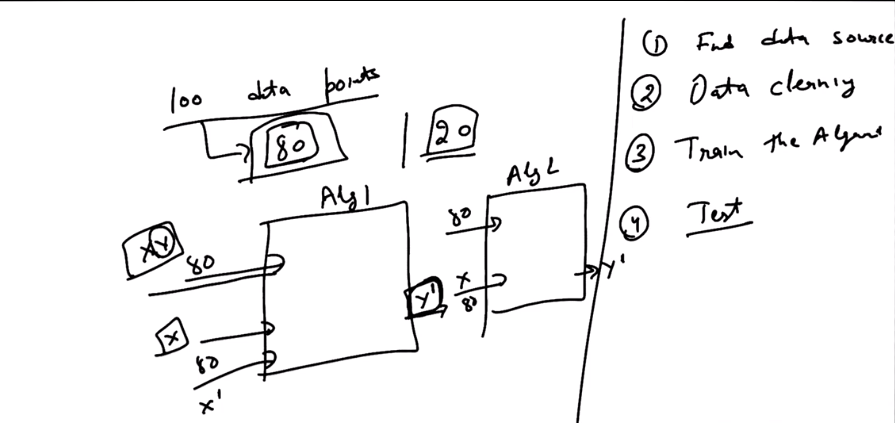 100 data points
80 | 20
Alg 1
XY
80
X
80
X'
Y'
Alg 2
80
X
80
Y'
① Find data source
② Data clerniy
③ Train the
④ Test